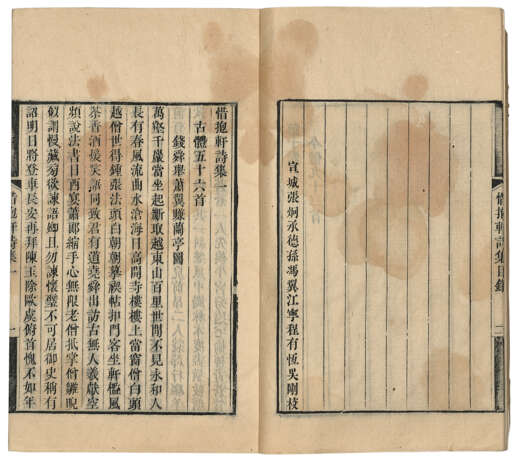 惜抱軒詩集目錄
二
宣城張炯承德孫馮翼江寧程有恆吳剛校
惜抱軒詩集一
古體五十六首
錢舜舉蕭翼賺蘭亭圖
萬壑千巖當坐起斷取越東山百里世間不見永和人
長有春風流曲水滄海日高開寺樓樓上當窗僧白頭
越僧世得鍾張法頭白朝朝摹禊帖扣門客坐軒檻風
茶香酒煖笑語同致君有道堯舜出訪古無人羲獻空
頻說法書日西宴蕭郎縮手心無限老僧抵掌僧雛睨
奴謂慢藏芻欲諫語卿且勿諫懷璧不可居御史稱有
詔明日將登車長安再拜陳玉除歐虞俯首愧不如年
惜抱軒詩集一
一